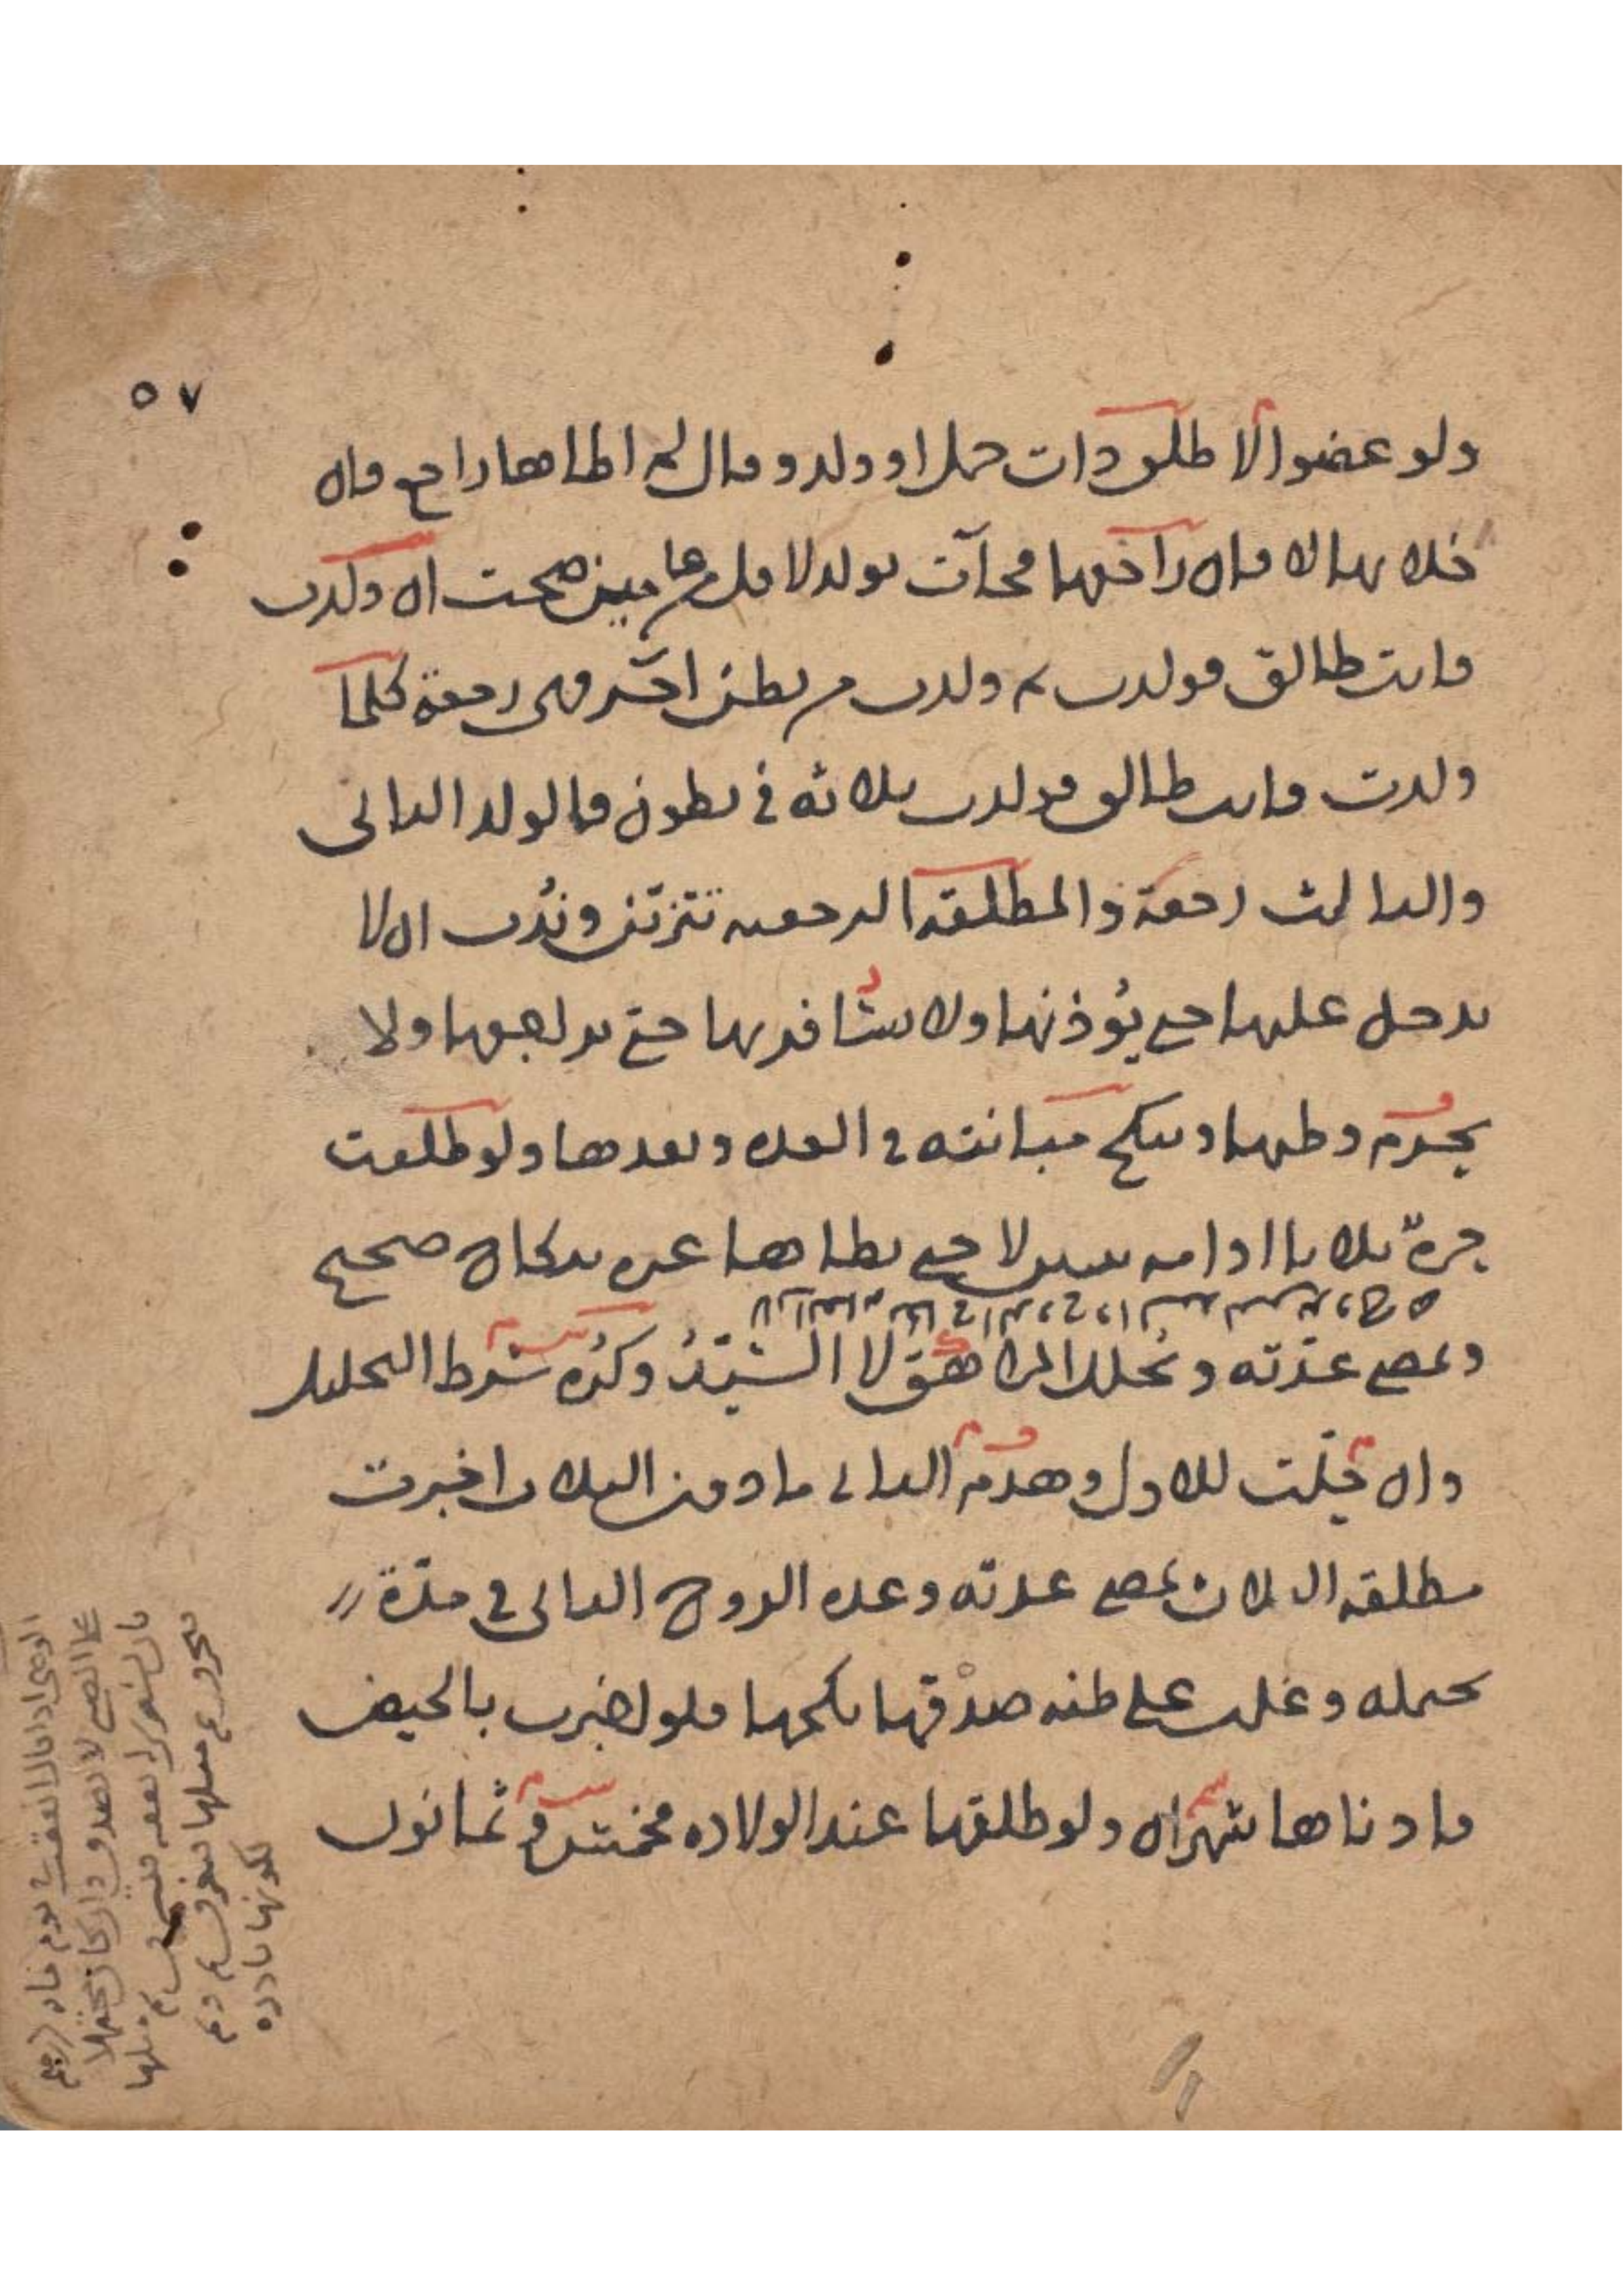 ٥٧
ولو عضوا لا طلق ذات حمل او ولد و قال لم اطاها راجع وان
خلا بها لا فان راجعها فجآت بولد لاقل من عامين صحت ان ولدت
فانت طالق فولدت ثم ولدت من بطن اخر فهي رجعة كلما
ولدت فانت طالق فولدت ثلاثة في بطون فالولد الثاني
والثالث رجعة والمطلقة الرجعيه تتزين وندب ان لا
يدخل عليها حتى يؤذنها ولا يسافر بها حتى يراجعها ولا
يحرم وطيها وينكح مبانته في العده وبعدها ولو طلقت
حرة ثلاثا او امه ثنتين لا حتى يطاها غيره بنكاح صحيح
وتمضي عدته ويحلل المراهق لا السيد وكره بشرط التحليل
وان حلت للاول وهدم الثاني ما دون الثلاث اخبرت
مطلقه الثلاث بمضي عدته وعدة الزوج الثاني في مدة
تحتمله وغلب على ظنه صدقها نكحها فلو اخبرت بالحيض
فادناها شهران ولو طلقها عند الولاده فخمسة وثمانون
لكونها نادره